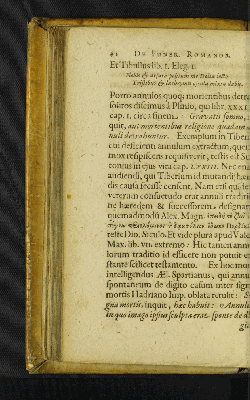 42 DE FUNER. ROMANOR.
Et Tibullus lib. 1. Eleg. 1.
Flebis & arsuro positum me Delia lecto
Tristibus & lacrymis oscula mixta dabis.
Porro annulos quoq; morientibus detra
solitos discimus à Plinio, qui libr. XXXI
cap. 1. circa finem. Gravatis somno,
quit, aut morientibus religione quadam
nuli detrahuntur. Exemplum in Tiber
cui deficienti annulum extractum, que
mox respiscens requisierit, testis est Sue
tonius in ejus vita cap. LXXIII. Nec ena
audiendi, qui Tiberium id mutandi hære
dis causa fecisse censent. Nam etsi qui
veterum consuetudo erat annuli traditi
ne hæredem & successorem designare
quemadmodo Alex. Magn.
teste Dio. Siculo. Et vide plura apud Vale
Max. lib. VII. extremo: Hic tamen annu
lorum traditio id efficere non potuit ex
stante scilicet testamento. Ex hoc mor
intelligendus Æl. Spartianus, qui annu
spontaneum de digito casum inter sign
mortis Hadriano Imp. oblata retulit: Si
gna mortis, inquit, hæc habuit: Annulus
in quo imago ipsius sculpta erat, sponte de di
gi